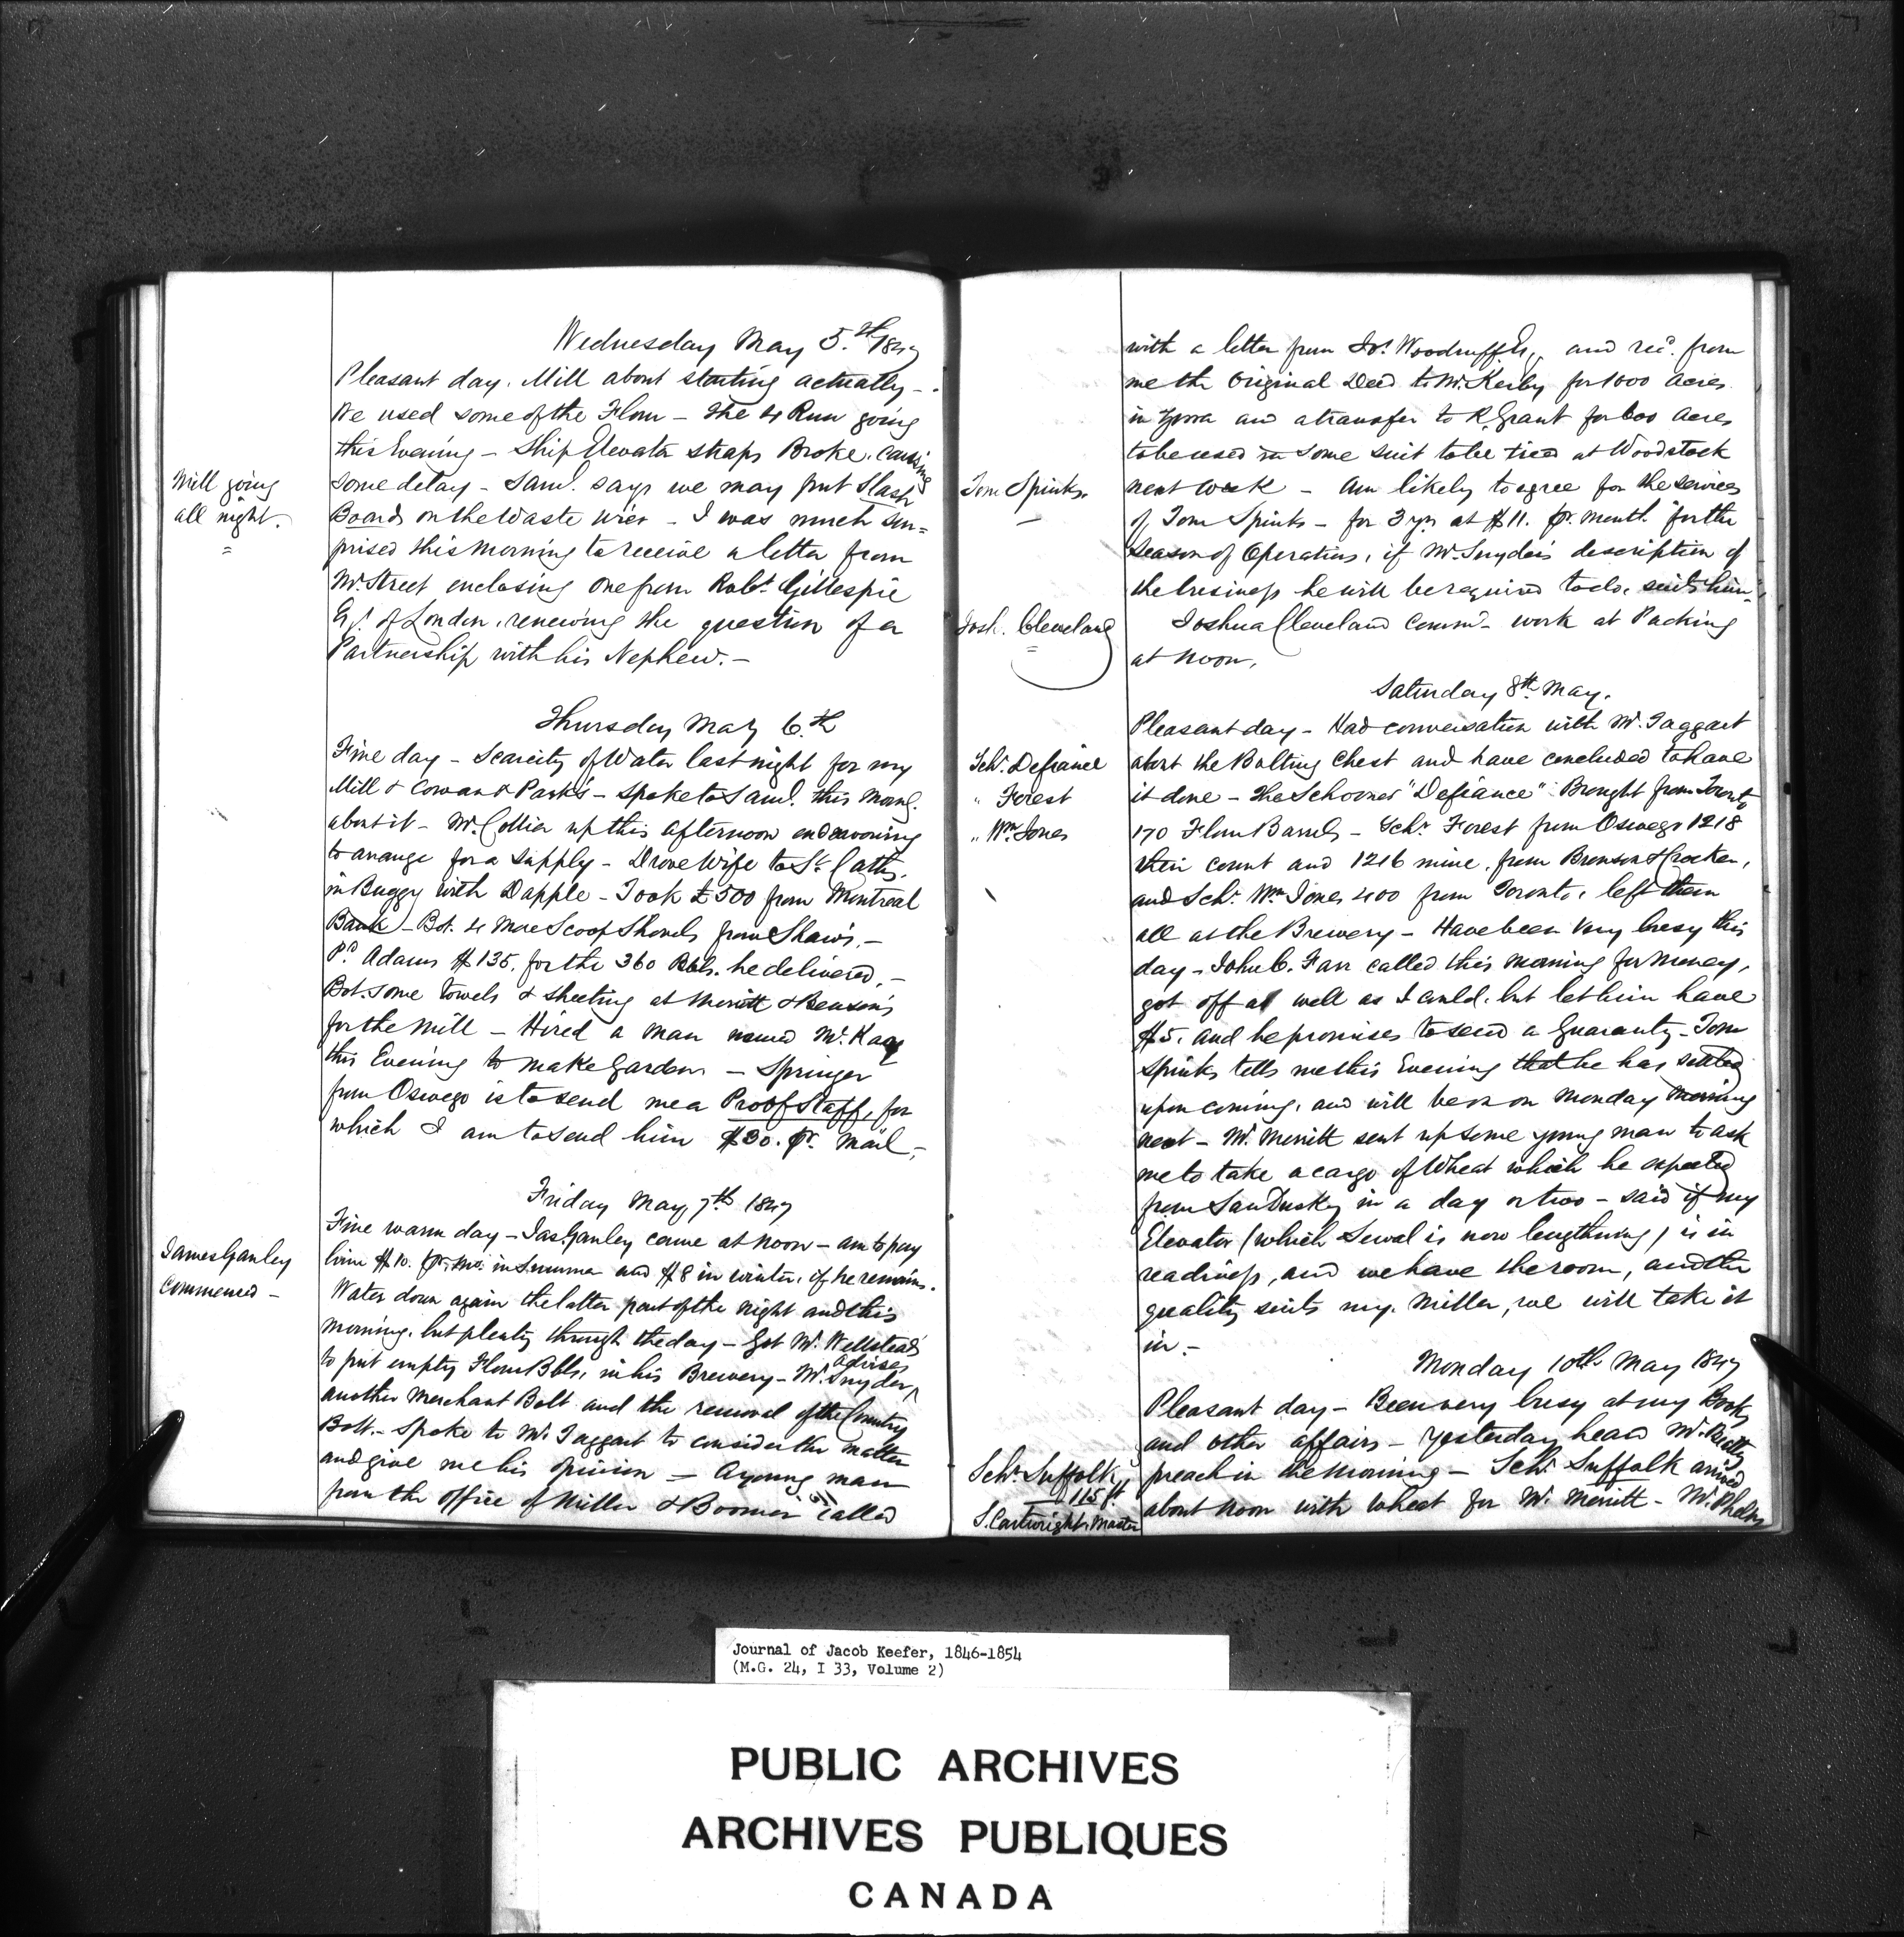 Wednesday May 5.th 1847
Pleasant day. Mill about starting actually -
We used some of the Flour - The 4 Run going
this Evening - Ship Elevator straps Broke, causing
Mill going
all night.
some delay - Saml. says we may put Slash
Boards on the Waste Wier - I was much sur=
prised this morning to receive a letter from
Mr. Street enclosing one from Robt. Gillespie
Esqr. of London, renewing the question of a
Partnership with his Nephew. -
Thursday May 6.th
Fine day - Scarcity of Water last night for my
Mill & Cowan & Park's - Spoke to Saml. this morng.
about it - Mr. Collier up this afternoon endeavouring
to arrange for a supply - Drove Wife to St. Caths.
in Buggy with Dapple - Took £500 from Montreal
Bank - Bot. 4 More Scoop Shovels from Shaw's. -
Pd. Adams $135. for the 360 Bbls. he delivered. -
Bot. some towels & sheeting at Merritt & Benson's
for the Mill - Hired a man named
this Evening to make Garden - Springer
from Oswego is to send me a Proof Staff, for
which I am to send him $30. pr. Mail -
Friday May 7th 1847
Fine warm day - Jas. Ganley came at noon - am to pay
James Ganley
Commenced -
him $10. pr. mo. in Summer and $8 in winter, if he remains.
Water down again the latter part of the night and this
morning, but plenty through the day - Got Mr. Wellstead
to put empty Flour Bbls. in his Brewery - Mr. Snyder advises
another Merchant Bolt and the removal of the Country
Bolt. - Spoke to Mr. Taggart to consider the matter
and give me his opinion - A young man
from the office of Miller & Boomer called
with a letter from Jos. Woodruff Esq. and recd. from
me the Original Deed to Mr. Kerby for 1000 Acres
in Zorra and a transfer to R. Grant for 600 Acres
to be used in some suit to be tried at Woodstock
Tom Spinks.
next week - Am likely to agree for the services
of Tom Spinks - for 3 yrs at $11. pr. month for the
season of Operations, if Mr. Snyder's description of
the business he will be required to do, suits him -
Josh. Cleveland
Joshua Cleveland commd. work at Packing
at noon.
Saturday 8th May.
Pleasant day - Had conversation with Mr. Taggart
Schr. Defiance
about the Bolting Chest and have concluded to have
" Forest
it done - The Schooner "Defiance" Brought from Toronto
" Wm. Jones
170 Flour Barrels - Schr. Forest from Oswego 1218
their count and 1216 mine, from Bronson & Crocker,
and Schr. Wm. Jones 400 from Toronto, left them
all at the Brewery - Have been very busy this
day - John C. Farr called this morning for Money,
got off as well as I could, but let him have
$5. and he promises to send a Guaranty - Tom
Spinks tells me this Evening that he has settled
upon coming, and will be on Monday morning
next - Mr. Merritt sent up some young man to ask
me to take a cargo of Wheat which he expected
from Sandusky in a day or two - said if my
Elevator (which Sewel is now lengthning) is in
readiness, and we have the room, and the
quality suits my Miller, we will take it
in. -
Monday 10th May 1847
Pleasant day - Been very busy at my Books
and other affairs - Yesterday heard Mr.
Schr. Suffolk,
115 ft.
S. Cartwright, Master
preach in the morning - Schr. Suffolk arrived
about noon with Wheat for Mr. Merritt - Mr. Phelps
Journal of Jacob Keefer, 1846-1854
(M.G. 24, I 33, Volume 2)
PUBLIC ARCHIVES
ARCHIVES PUBLIQUES
CANADA